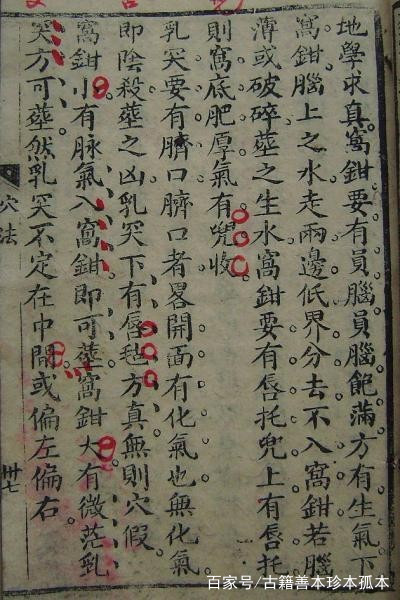 地學求真窩鉗要有員腦員腦飽滿方有生氣下
窩鉗腦上之水走兩邊低界分去不入窩鉗若腦
薄或破碎葬之生水窩鉗要有唇托兜上有唇托
則窩底肥厚氣有兜收
乳突要有臍口臍口者畧開面有化氣也無化氣
即陰殺葬之凶乳突下有唇毡方真無則穴假
窩鉗小有脉氣入窩鉗即可葬窩鉗大有微茫乳
突方可葬然乳突不定在中間或偏左偏右
穴法
卅七
百家号/古籍善本珍本孤本